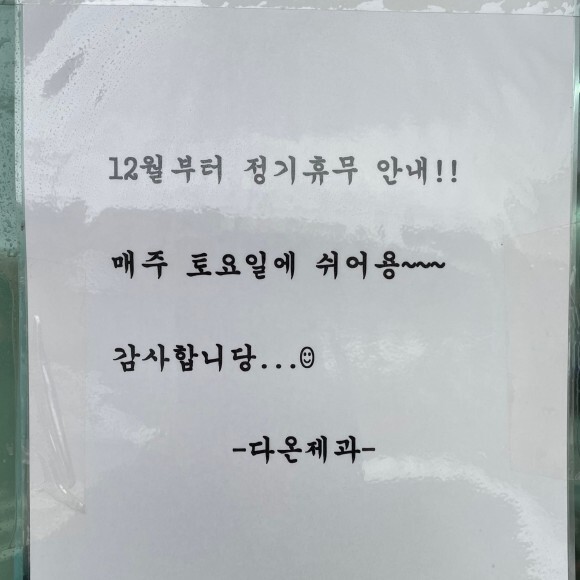 12월부터 정기휴무 안내!!
매주 토요일에 쉬어용~~~
감사합니당...☺
-다온제과-